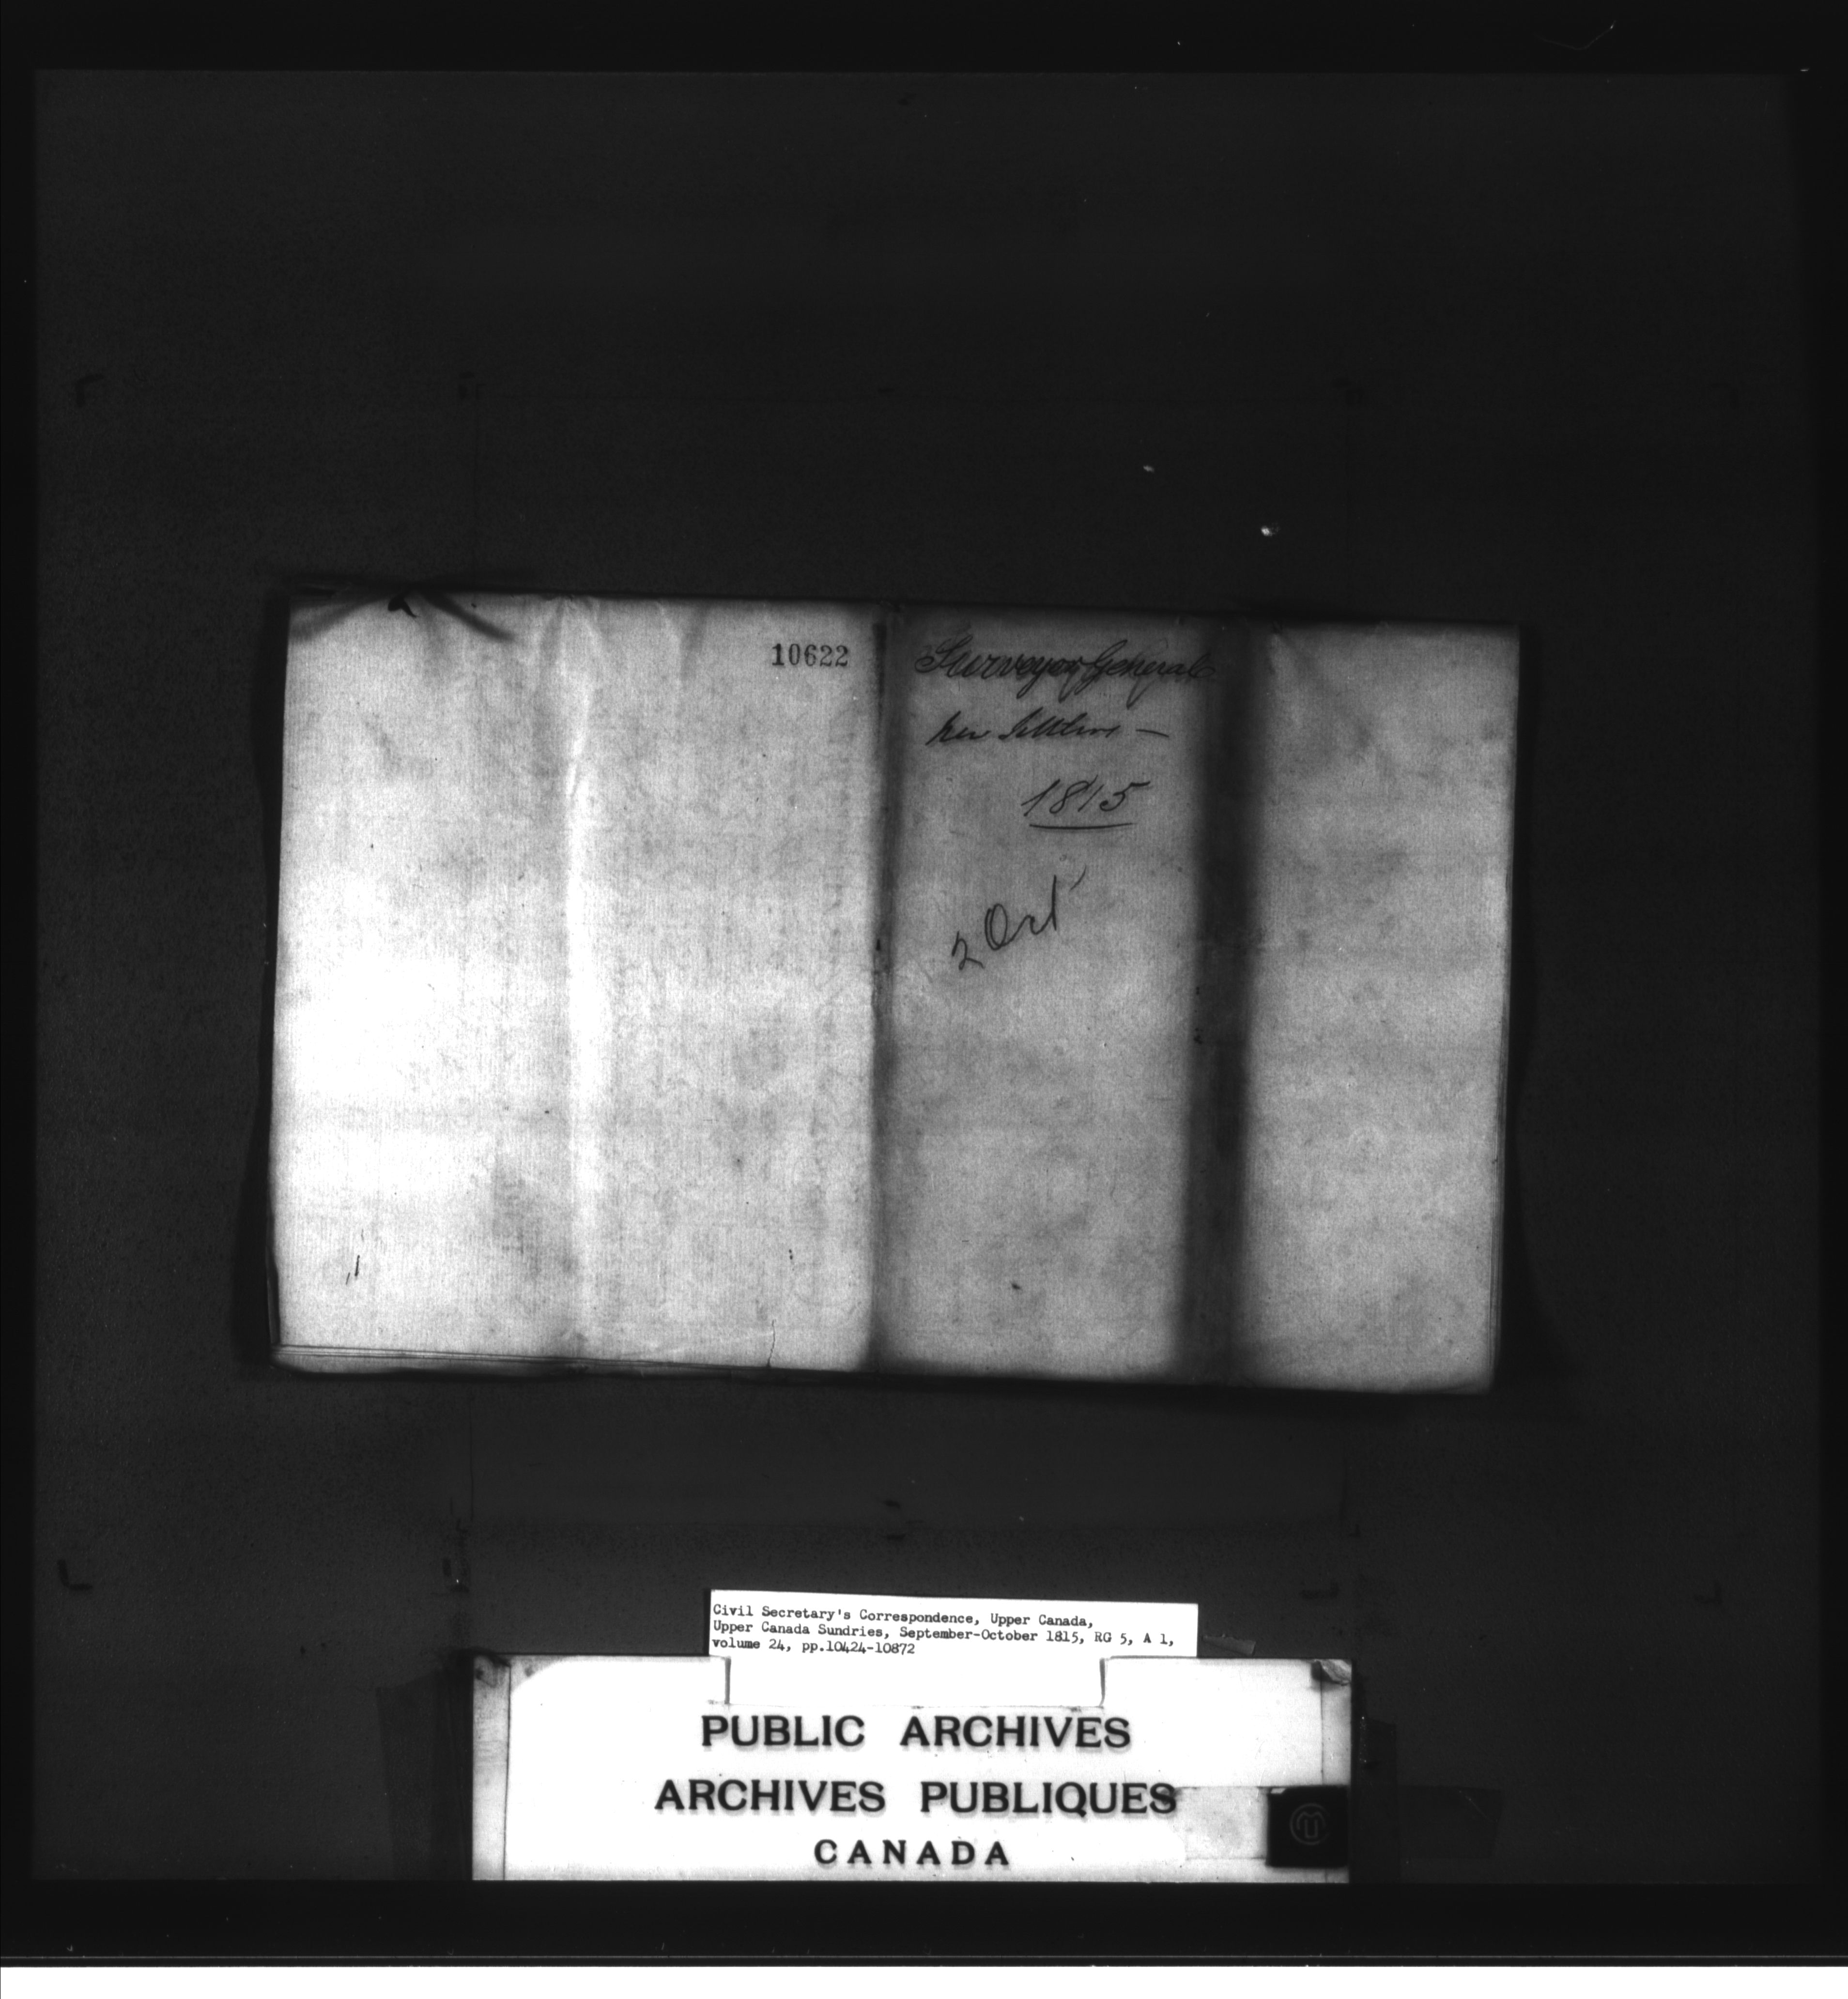 10622
Surveyor General
New Settlers —
1815
2 Oct
Civil Secretary's Correspondence, Upper Canada,
Upper Canada Sundries, September-October 1815, RG 5, A 1,
volume 24, pp.10424-10872
PUBLIC ARCHIVES
ARCHIVES PUBLIQUES
CANADA